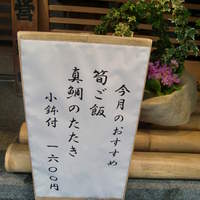 今月のおすすめ
筍ご飯
真鯛のたたき
小鉢付 一六〇〇円
営